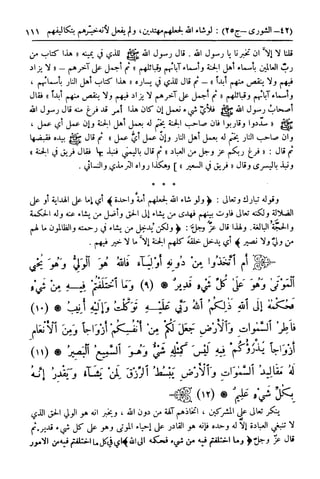 (٤٢- الشورى -ج٢٥) : لوشاء الله لجعلهم مهتدين، ولم يفعل لأنه خيّرهم بتكاليفهم ١١١
قلنا لا إلاّ أن تخبرنا يا رسول الله . قال رسول الله ﷺ للذي في يمينه « هذا كتاب من
ربّ العالمين بأسماء أهل الجنة وأسماء آبائهم وقبائلهم » ثم أجمل على آخرهم - « لا يزاد
فيهم ولا ينقص منهم أبداً » - ثم قال للذي في يساره « هذا كتاب أهل النار بأسمائهم ،
وأسماء آبائهم وقبائلهم » ثم أجمل على آخرهم لا يزاد فيهم ولا ينقص منهم أبداً « فقال
أصحاب رسول الله ﷺ فلأيّ شيء نعمل إن كان هذا أمر قد فرغ منه قال رسول الله
ﷺ « سدّدوا وقاربوا فإن صاحب الجنة يختم له بعمل أهل الجنة وإن عمل أي عمل ،
وان صاحب النار يختم له بعمل أهل النار وإن عمل أي عمل » ثم قال ﷺ بيده فقبضها
ثم قال : « فرغ ربكم عز وجل من العباد » ثم قال باليمنى فنبذ بها فقال فريق في الجنة »
ونبذ باليسرى وقال « فريق في السعير » ] وهكذا رواه الترمذي والنسائي .
* * *
وقوله تبارك وتعالى : ﴿ولو شاء الله لجعلهم أمة واحدة﴾ أي إما على الهداية أو على
الضلالة ولكنه تعالى فاوت بينهم فهدى من يشاء إلى الحق وأضل من يشاء عنه وله الحكمة
والحجّة البالغة. ولهذا قال عزّ وجلّ : ﴿ولكن يُدخل من يشاء في رحمته والظالمون ما لهم
من وليّ ولا نصير﴾ أي يدخل خلقَه كلهم الجنة إلاّ ما لا خير فيهم .
أَمِ ٱتَّخَذُوا۟ مِن دُونِهِۦٓ أَوْلِيَآءَ فَٱللَّهُ هُوَ ٱلْوَلِىُّ وَهُوَ يُحْىِ
ٱلْمَوْتَىٰ وَهُوَ عَلَىٰ كُلِّ شَىْءٍ قَدِيرٌ (٩) وَمَا ٱخْتَلَفْتُمْ فِيهِ مِن شَىْءٍ
فَحُكْمُهُۥٓ إِلَى ٱللَّهِ ذَٰلِكُمُ ٱللَّهُ رَبِّى عَلَيْهِ تَوَكَّلْتُ وَإِلَيْهِ أُنِيبُ (١٠)
فَاطِرُ ٱلسَّمَٰوَٰتِ وَٱلْأَرْضِ جَعَلَ لَكُم مِّنْ أَنفُسِكُمْ أَزْوَٰجًا وَمِنَ ٱلْأَنْعَٰمِ
أَزْوَٰجًا يَذْرَؤُكُمْ فِيهِ لَيْسَ كَمِثْلِهِۦ شَىْءٌ وَهُوَ ٱلسَّمِيعُ ٱلْبَصِيرُ (١١)
لَهُۥ مَقَالِيدُ ٱلسَّمَٰوَٰتِ وَٱلْأَرْضِ يَبْسُطُ ٱلرِّزْقَ لِمَن يَشَآءُ وَيَقْدِرُ إِنَّهُۥ
بِكُلِّ شَىْءٍ عَلِيمٌ (١٢)
ينكر تعالى على المشركين ، اتخاذهم آلهة من دون الله ، ويخبر انه هو الولي الحق الذي
لا تنبغي العبادة إلاّ له وحده فإنه هو القادر على إحياء الموتى وهو على كل شيء قدير.ثم
قال عزّ وجلّ ﴿وما اختلفتم فيه من شيء فحكمه الى الله﴾أي في كل ما اختلفتم فيه من الامور